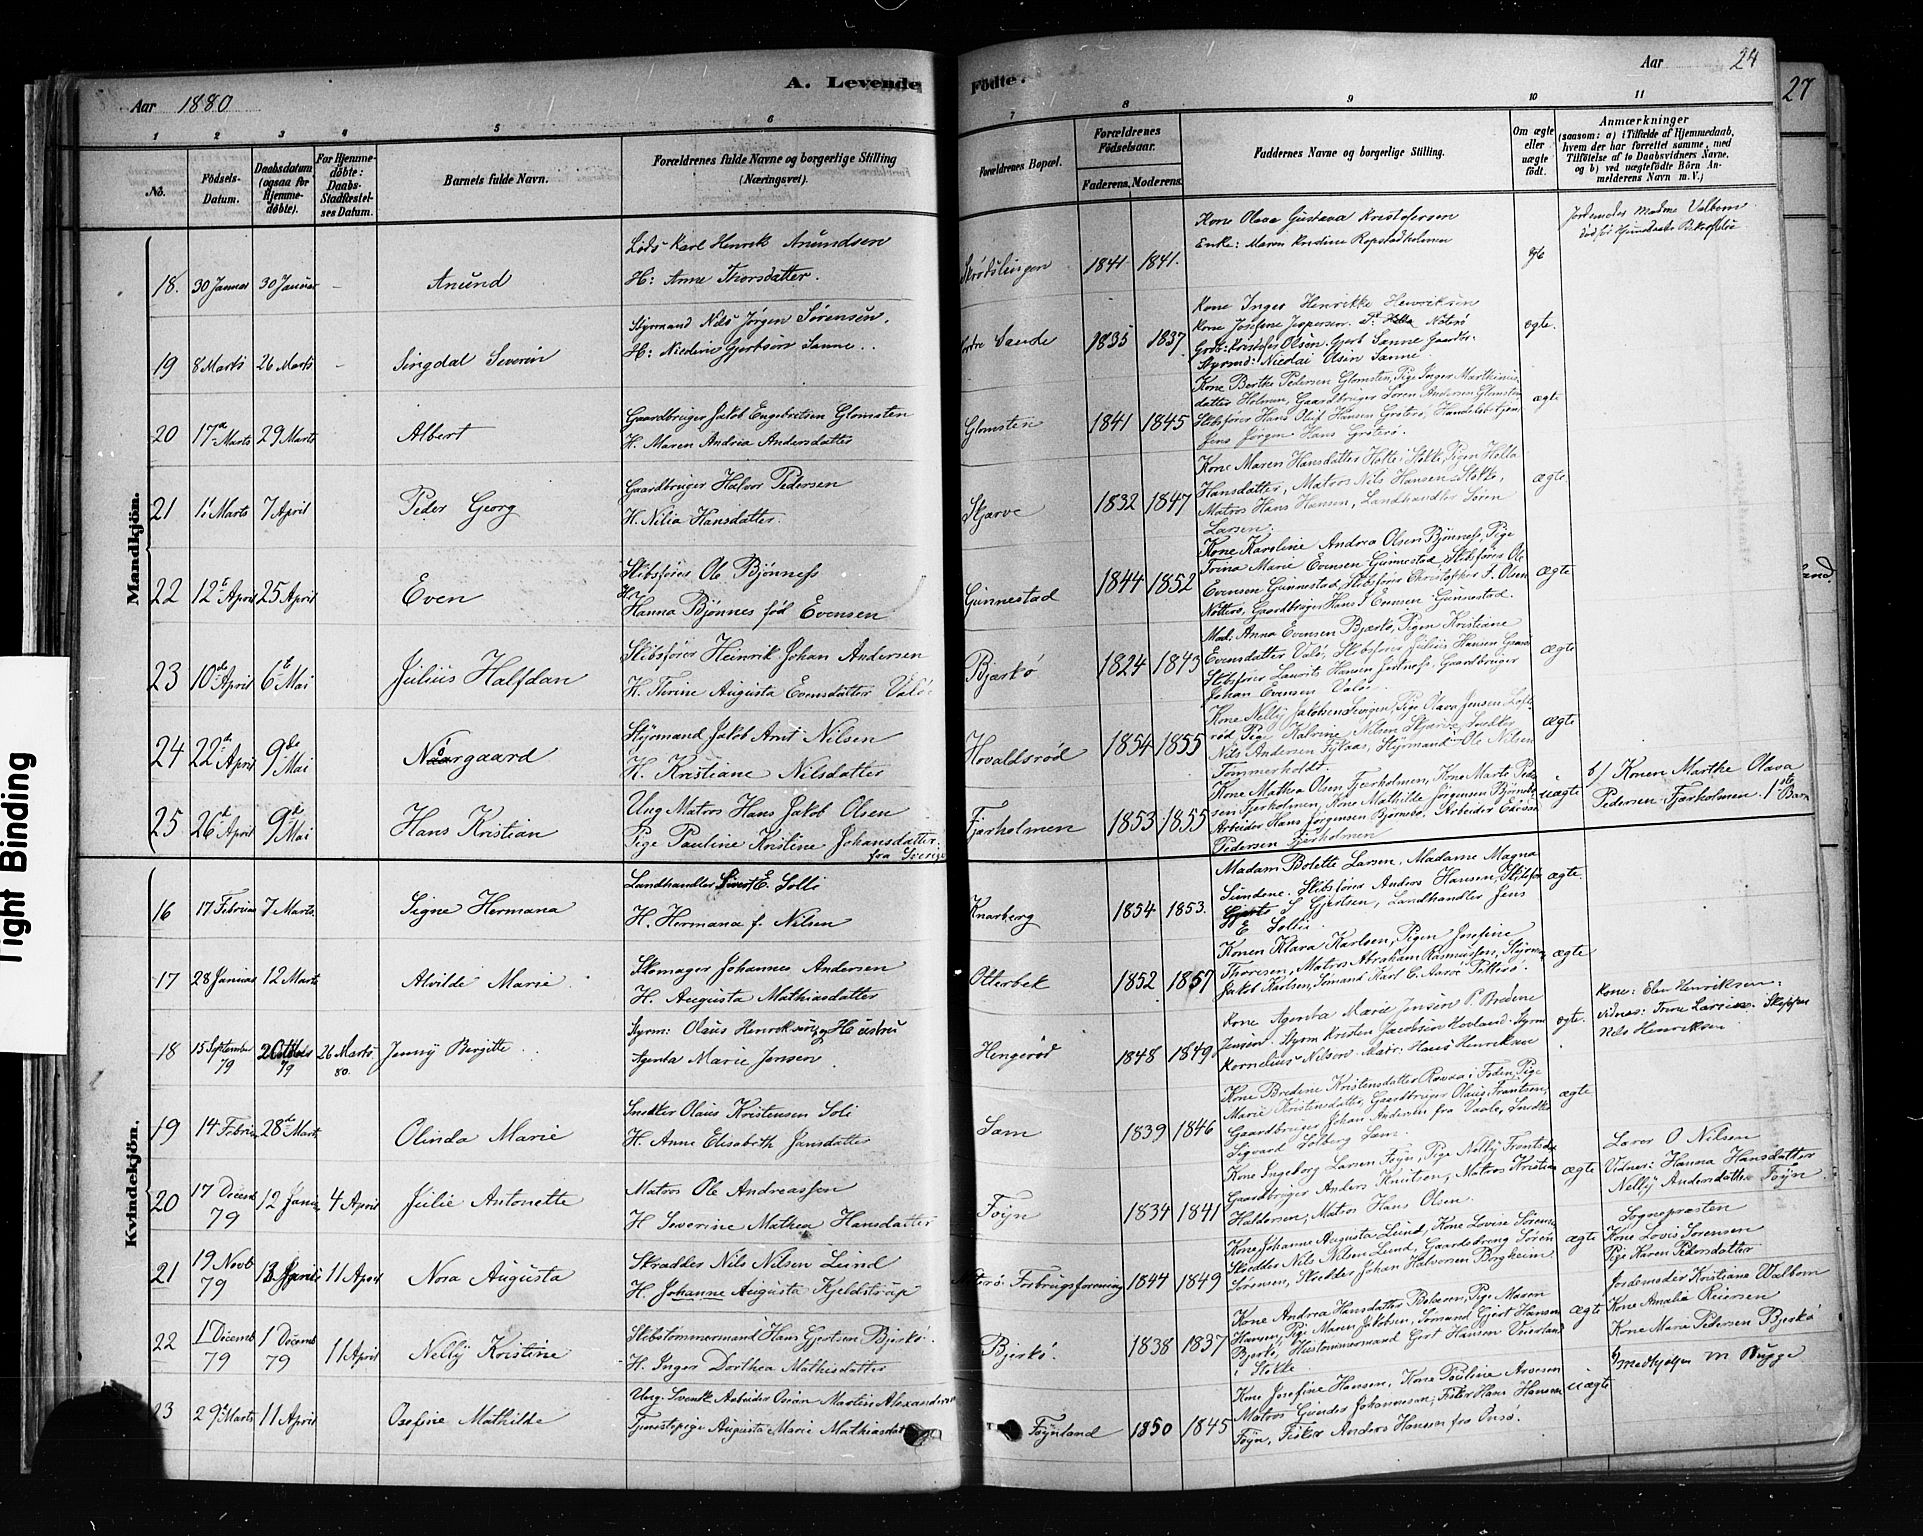 Aar 1880
A. Levende Födte.
Aar 24
27
1 2 3 4 5 6 7 8 9 10 11
No.
Födsels-Datum.
Daabsdatum (ogsaa for Hjemme-döbte).
For Hjemme-döbte: Daabs-Stadfæstel-ses Datum.
Barnets fulde Navn.
Forældrenes fulde Navne og borgerlige Stilling (Næringsvei).
Forældrenes Bopæl.
Forældrenes Födselsaar.
Faderens. Moderens.
Faddernes Navne og borgerlige Stilling.
Om ægte eller uægte födt.
Anmærkninger
(saasom: a) i Tilfælde af Hjemmedaab, hvem der har forrettet samme, med Tilföielse af to Daabsvidners Navne, og b) ved uægtefödte Börn An-melderens Navn m. V.)
Mandkjön.
18. 30 Januar 30 Januar - Anund
Lods Karl Henrik Anundsen
H: Anne Thorsdatter.
1841 1841.
Kone Olava Gustava Kristofersen
Enke: Maren Kristine Ropstadholmen
19 8 Marts 26 Marts - Singdal Severin
Styrmand Nils Jörgen Sörensen.
H: Nicoline Gjertsen Sanne.
1835 1837
Kone Inger Henrikke Henriksen
Kone Josefine Jespersen
Styrmd: Nicolai Olsen Sanne
ægte.
20 17de Marts 29 Marts Albert
Gaardbruger Jakob Engebretsen Glomsten
H. Maren Andrea Andersdatter
Glomsten 1841 1845
Kone Berthe Pedersen Glomsten, Pige Inger Marthinius-
datter Holmen, Gaardbruger Sören Andersen Glomsten
Skibsförer Hans Oluf Hansen
Jens Jörgen Hans
ægte
21 11 Marts 7 April Peder Georg
Gaardbruger Halvor Pedersen
H. Nilia Hansdatter.
Skjærve 1832 1847
Kone Maren Hansdatter
Hansdatter, Matros Nils Hansen Stokke,
Matros Hans Hansen, Landhandler Sören
Larsen.
ægte
22 12te April 25 April Even
Skibsförer Ole Bjönness
H. Hanna Bjönnes född Evensen
Gunnestad 1844 1852
Kone Karoline Andrea Olsen Bjönness, Pige
Trina Marie Evensen Gunnestad, Skibsförer Ole
Evensen Gunnestad, Skibsförer Christopher F. Olsen
Nötterö, Gaardbruger Hans J Evensen Gunnestad.
ægte
23 10de April 6te Mai Julius Halfdan
Skibsförer Heinrik Johan Andersen
H. Thrine Augusta Evensdatter Valö
Bjærkö 1824 1843
Mad. Anna Evensen Bjærkö, Pigen Kristiane
Evensdatter Valö, Skibsförer Julius Hansen
Skibsförer Laurits Hansen Gaardbruger
Johan Evensen Valö.
ægte
24 22de April 9de Mai Naargaard
Styrmand Jakob Arnt Nilsen
H. Kristiane Nilsdatter
Hovaldsröd 1854 1855
Kone Nelly Jakobsen Pige Olava Jensen
röd, Pige Kalrine Nilsen Skjærve, Snedker
Nils Andersen Styrmand Ole Nilsen
Tömmerholdt.
ægte
25 26de April 9de Mai Hans Kristian
Ung Matros Hans Jakob Olsen
Pige Pauline Kristine Johansdatter
fra Sverige
Fjærholmen 1853 1855
Kone Mathea Olsen Fjærholmen, Kone Marte Peder-
sen Fjærholmen, Kone Mathilde Jörgensen
Arbeider Hans Jörgensen Arbeider
Pedersen Fjærholmen
uægte
b/ Konen Marthe Olava
Pedersen Fjærholmen. 1ste Barn
Kvindekjön.
16 17 Februar 7 Marts. Signe Hermana
Landhandler Sivert E. Solli
H. Hermana f. Nilsen
Knarberg 1854 1853.
Madam Bolette Larsen, Madame Magna
Sundene, Skibsförer Anders Hansen, Skibsför
S Gjertsen, Landhandler Jens
E Solli.
ægte
17 28 Januar 12 Marts Alvilde Marie
Skomager Johannes Andersen
H. Augusta Mathiasdatter
Otterbek 1852 1857
Konen Klara Karlsen, Pigen Josefine
Thoresen, Matros Abraham Rasmussen, Styrm
Jakob Karlsen, Sömand Karl C.
ægte
18 15 September 79 2 October 79 26 Marts 80. Jenny Bergitte
Styrm: Olaus Henriksen og Hustru
Agenda Marie Jensen
Hengeröd 1848 1849
Kone Agentha Marie Jensen P. Bredene
Jensen. Styrm Kristen Jacobsen Hovland. Styrm
Kornelius Nilsen Matr: Hans Henriksen
ægte.
Kone: Elen Henriksen:
vidner: Trine Larsen. Skipper
Nils Henriksen
19 14 Februar 28de Mart Olinda Marie
Snedker Olaus Kristensen Soli
H. Anne Elisabeth Jansdatter
Sam 1839 1846
Kone Bredine Kristensdatter Pige
Marie Kristensdatter, Gaardbruger Olaus Frantsen,
Gaardbruger Johan Andersen fra Vaale, Snedker
Sigvard Solberg Sam.
ægte
20 17 Decemb 79 12 Janu 4 April Julie Antonette
Matros Ole Andreassen
H Severine Mathea Hansdatter
Föyn 1834 1841
Kone Ingeborg Larsen Föyn, Pige Nelly Frantsd
Gaardbruger Anders Knutsen, Matros Kristian
Haldorsen, Matros Hans Olsen.
ægte
Lærer O Nilsen
Vidner: Hanna Hansdatter
Nelly Andersdatter Föyn.
21 19 Novb 79 11 April Nora Augusta
Skrædder Nils Nilsen Lund
H. Johanne Augusta Kjeldstrup
Forbrugsforening 1844 1849
Kone Johanne Augusta Lund, Kone Lovise Sörense
Skrædder Nils Nilsen Lund, Gaardbrug Sören
Sörensen, Skrædder Johan Halvorsen Borgheim
ægte
Sognepræsten
Kone Lovis Sörensen
Pige Karen Pedersdatter
22 1 Decemb 79 1 Decemb 79 11 April Nelly Kristine
Skibstömmermand Hans Gjertsen Bjerkö.
H. Inger Dorthea Mathisdatter
Bjerkö 1838 1837
Kone Andrea Hansdatter Pige Maren
Hansen, Pige Maren Jakobsen, Sömand Gjert Hansen
Bjerkö, Hustömmermand Gert Hansen
i Stokke
ægte
Jordemoder Kristiane Walbom
Kone Amalia Reiersen
Kone Mara Pedersen Bjerkö
23 29 Marts 11 April Osefine Mathilde
Ung. Svensk Arbeider Osian Martin Alexandersen
Tjenestepige Augusta Marie Mathiasdat
Föynland 1850 1845
Kone Josefine Hansen, Kone Pauline
Matros Gunder Johannesen, Fisker Hans Hansen
Föyn, Fisker Anders Hansen fra Onsö.
uægte
Tight Binding